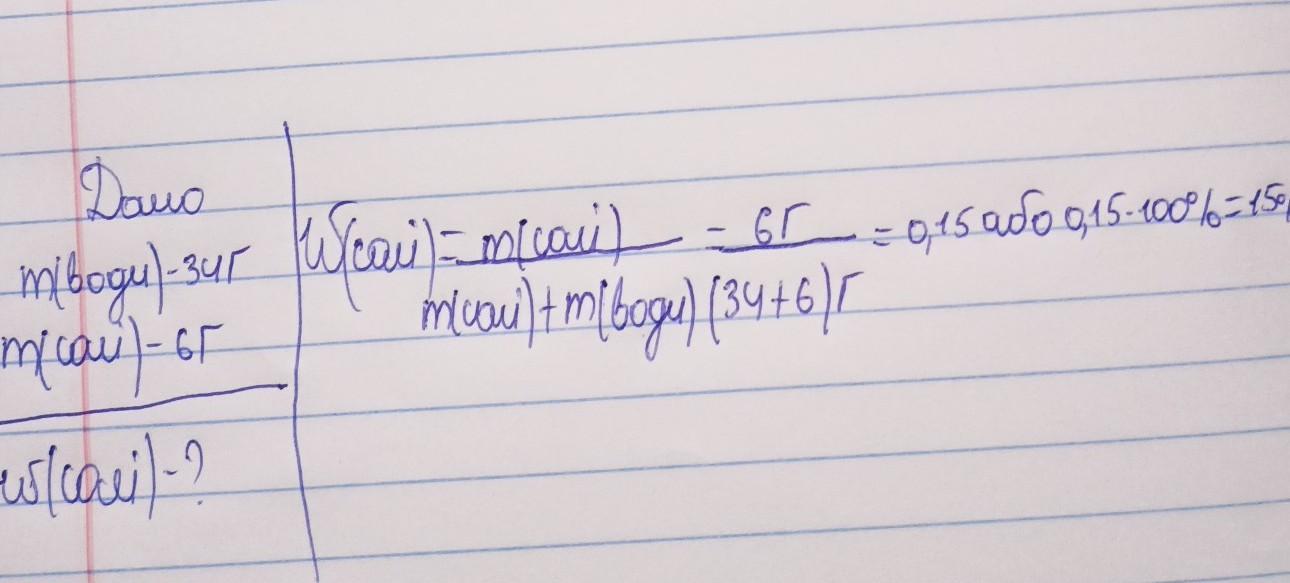 Дано
m(води)-34г
m(солі)-6г
w(солі)-?
W(солі)=m(солі)/m(солі)+m(води)=6г/(34+6)г=0,15 або 0,15·100%=15%